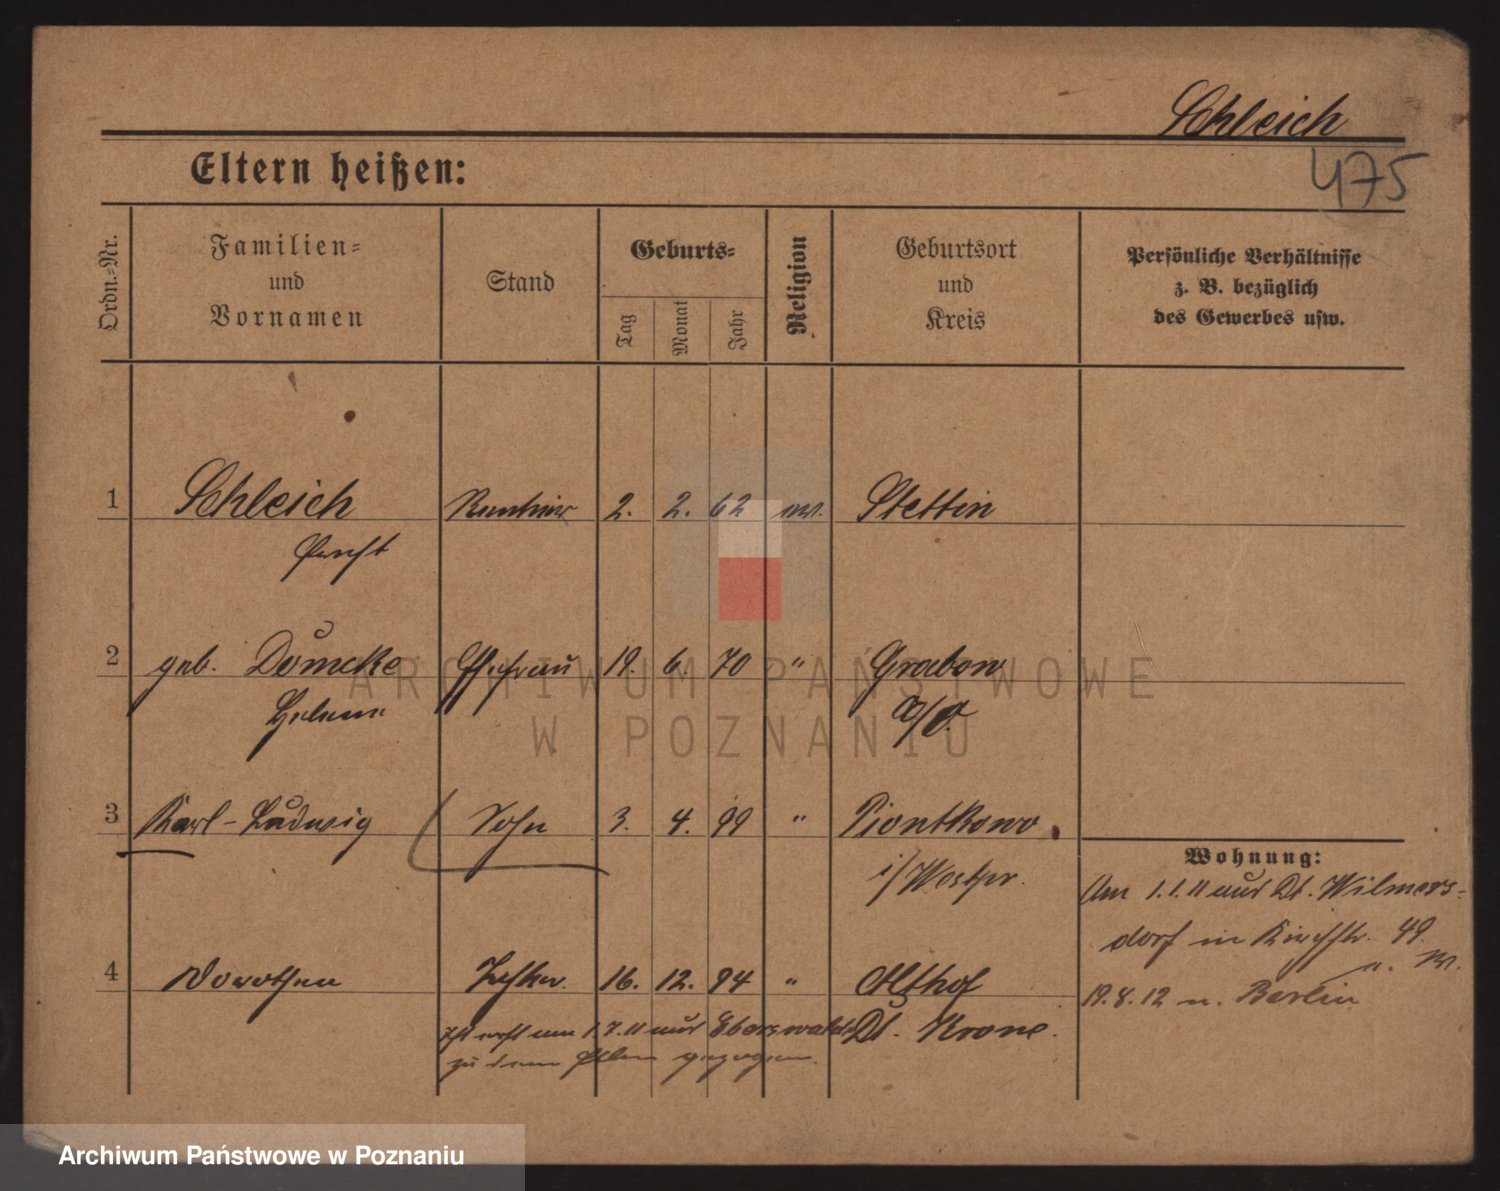 Schleich
475
Eltern heißen:
Ordn.-Nr.
Familien-
und
Vornamen
Stand
Geburts-
Tag
Monat
Jahr
Religion
Geburtsort
und
Kreis
Persönliche Verhältnisse
z. B. bezüglich
des Gewerbes usw.
1 Schleich Rentier 2. 2. 62 ev. Stettin
Ernst
2 geb. Dumcke Ehefrau 19. 6. 70 " Grabow
Helene a/O.
3 Karl-Ludwig Sohn 3. 4. 99 " Piontkowo
i/Westpr.
Wohnung:
Am 1.1.11 aus Dt. Wilmers-
dorf in Kirchstr. 49.
4 Dorothea Tochter 16. 12. 94 " Althof
19.8.12 n. Berlin
Ist erst am 1.7.11 aus Eberswalde Dt. Krone.
zu den Eltern gezogen.
ARCHIWUM PAŃSTWOWE
W POZNANIU
Archiwum Państwowe w Poznaniu